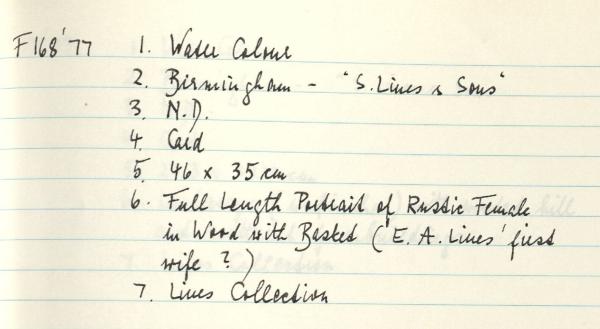 F168'77 1. Water Colour
2. Birmingham - "S. Lines & Sons"
3. N.D.
4. Card
5. 46 x 35 cm
6. Full Length Portrait of Rustic Female
in Wood with Basket ('E. A. Lines' first
wife ?)
7. Lines Collection